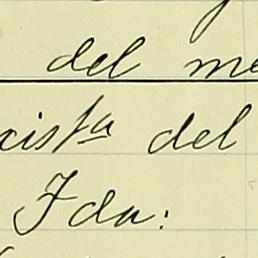 del me
cista del
Ida: